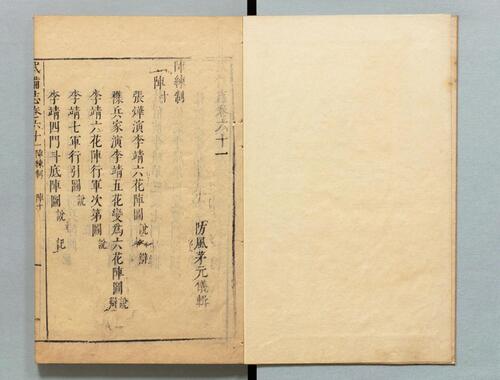 武備志卷六十一
防風茅元儀輯
陣練制
陣十
張燁演李靖六花陣圖 說 辯
襍兵家演李靖五花變為六花陣圖 說 辯
李靖六花陣行軍次第圖 說
李靖七軍行引圖 說
李靖四門斗底陣圖 說 記
武備志卷六十一 陣練制 陣十